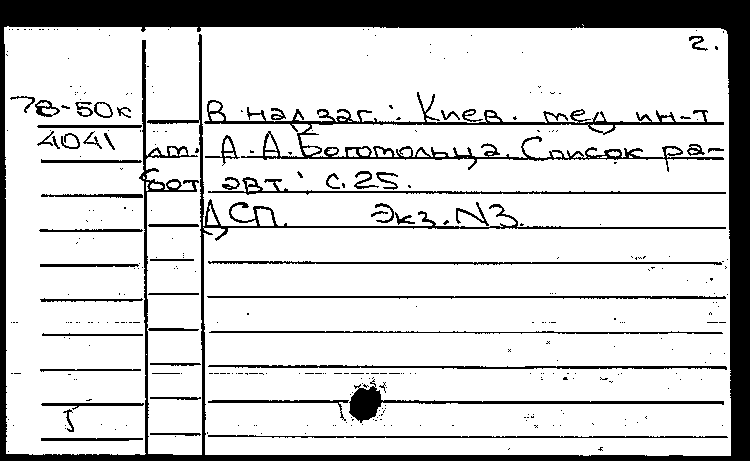 2.
78-50к В надзаг.: Киев. мед. ин-т
4041 им. А.А.Богомольца. Список ра-
бот авт.: с.25.
ДСП. Экз.N3.